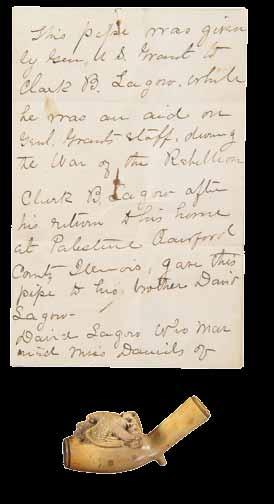 This pipe was given
by Gen, U.S. Grant to
Clark B. Lagow, while
he was an aid on
Genl. Grants staff, during
the War of the Rebellion
Clark B, Lagow after
his return to his home
at Palestine Crawford
County Illinois, gave this
pipe to his brother David
Lagow-
David Lagow who mar
ried Miss Daniels of